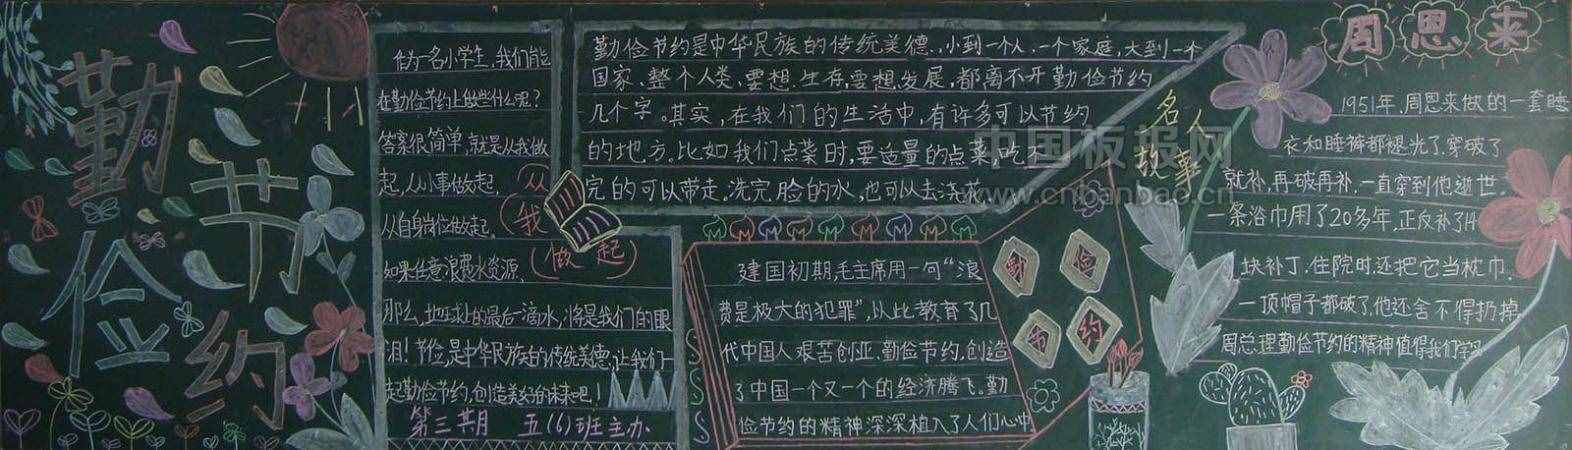 勤俭节约
作为一名小学生,我们能
在勤俭节约上做些什么呢?
答案很简单,就是从我做
起,从小事做起,
从自身岗位做起。
如果任意浪费水资源,
那么,地球上的最后一滴水,将是我们的眼
泪!节俭,是中华民族的传统美德,让我们一
起勤俭节约,创造美好的未来吧!
第三期 五(6)班主办
从
我
做起
勤俭节约是中华民族的传统美德,小到一个人、一个家庭,大到一个
国家、整个人类,要想生存,要想发展,都离不开勤俭节约
几个字。其实,在我们的生活中,有许多可以节约
的地方。比如我们点菜时,要适量的点菜,吃不
完的可以带走。洗完脸的水,也可以去浇花。
建国初期,毛主席用一句“浪
费是极大的犯罪”,以此教育了几
代中国人艰苦创业、勤俭节约,创造
了中国一个又一个的经济腾飞。勤
俭节约的精神深深植入了人们心中
勤俭
节约
名人
故事
周恩来
1951年,周恩来做的一套睡
衣和睡裤都褪光了,穿破了
就补,再破再补,一直穿到他逝世。
一条浴巾用了20多年,正反补了14
块补丁,住院时,还把它当枕巾。
一顶帽子都破了,他还舍不得扔掉
周总理勤俭节约的精神值得我们学习
中国板报网
www.cnbanbao.cn